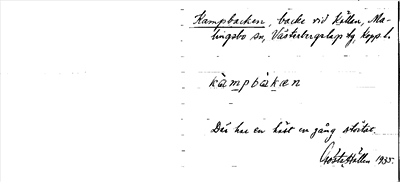 Kampbacken, backe vid Kullen, Ma-
lingsbo sn, Västerbergslags tg, Kopp. l.
kàmpbàkæn
Där har en häst en gång störtat.
1935.